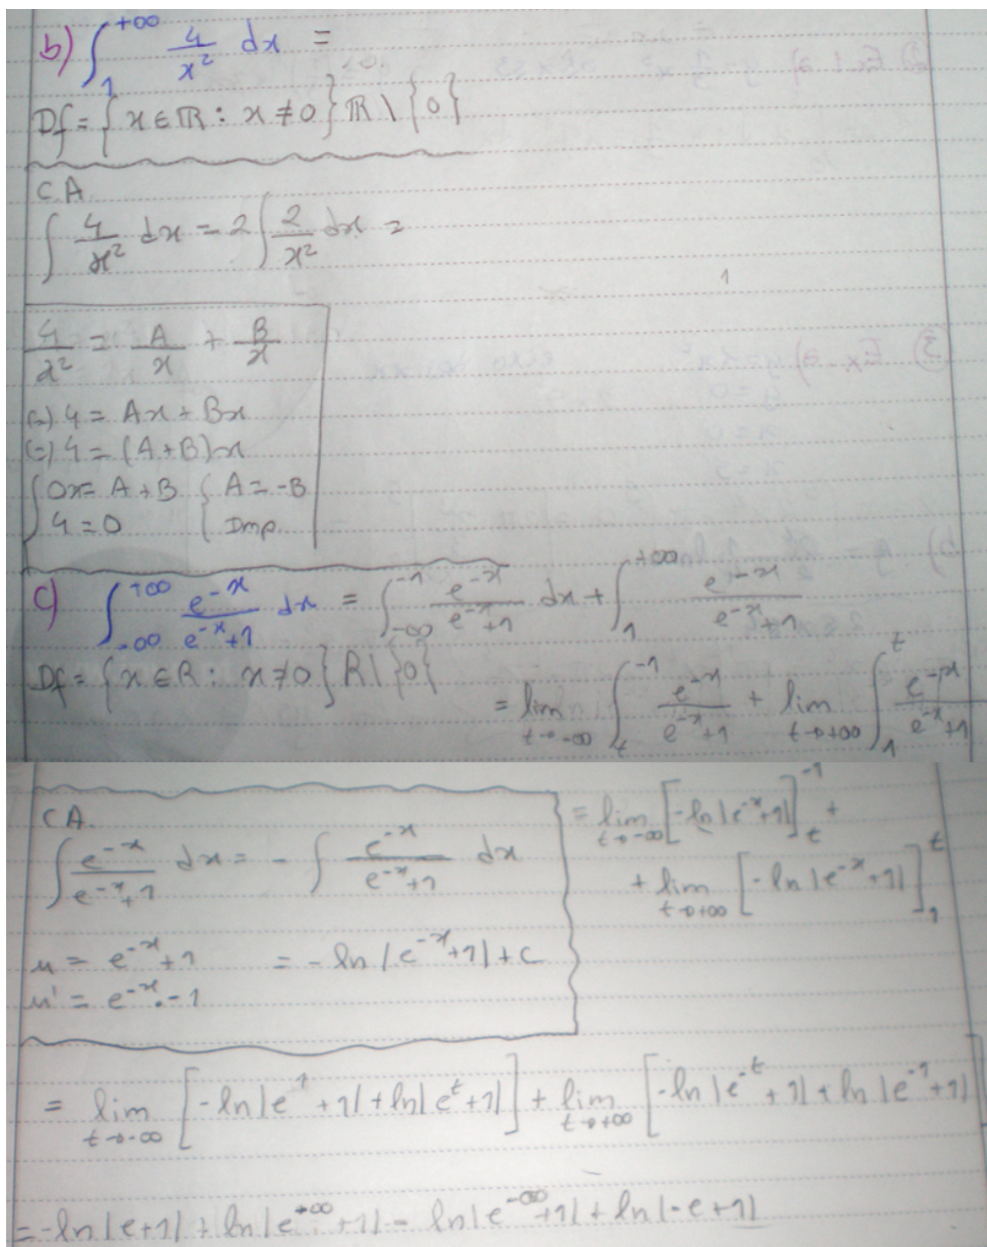 b) ∫₁^{+∞} 4/x² dx =
Df = {x ∈ ℝ : x ≠ 0} ℝ \ {0}
C.A.
∫ 4/x² dx = 2 ∫ 2/x² dx =
4/x² = A/x + B/x
(=) 4 = Ax + Bx
(=) 4 = (A+B)x
{ 0x = A + B { A = -B
{ 4 = 0 { Imp.
c) ∫_{-∞}^{+∞} e^{-x}/(e^{-x}+1) dx = ∫_{-∞}^{-1} e^{-x}/(e^{-x}+1) dx + ∫₁^{+∞} e^{-x}/(e^{-x}+1)
Df = {x ∈ R : x ≠ 0} R \ {0}
= lim_{t→-∞} ∫_t^{-1} e^{-x}/(e^{-x}+1) + lim_{t→+∞} ∫₁^t e^{-x}/(e^{-x}+1)
CA.
∫ e^{-x}/(e^{-x}+1) dx = - ∫ e^{-x}/(e^{-x}+1) dx
u = e^{-x}+1 = -ln|e^{-x}+1|+c
u' = e^{-x}.-1
= lim_{t→-∞} [-ln|e^{-x}+1|]_t^{-1} +
+ lim_{t→+∞} [-ln|e^{-x}+1|]_1^t
= lim_{t→-∞} [-ln|e^1+1|+ln|e^t+1|] + lim_{t→+∞} [-ln|e^{-t}+1|+ln|e^{-1}+1|]
= -ln|e+1| + ln|e^{+∞}+1| - ln|e^{-∞}+1| + ln|-e+1|